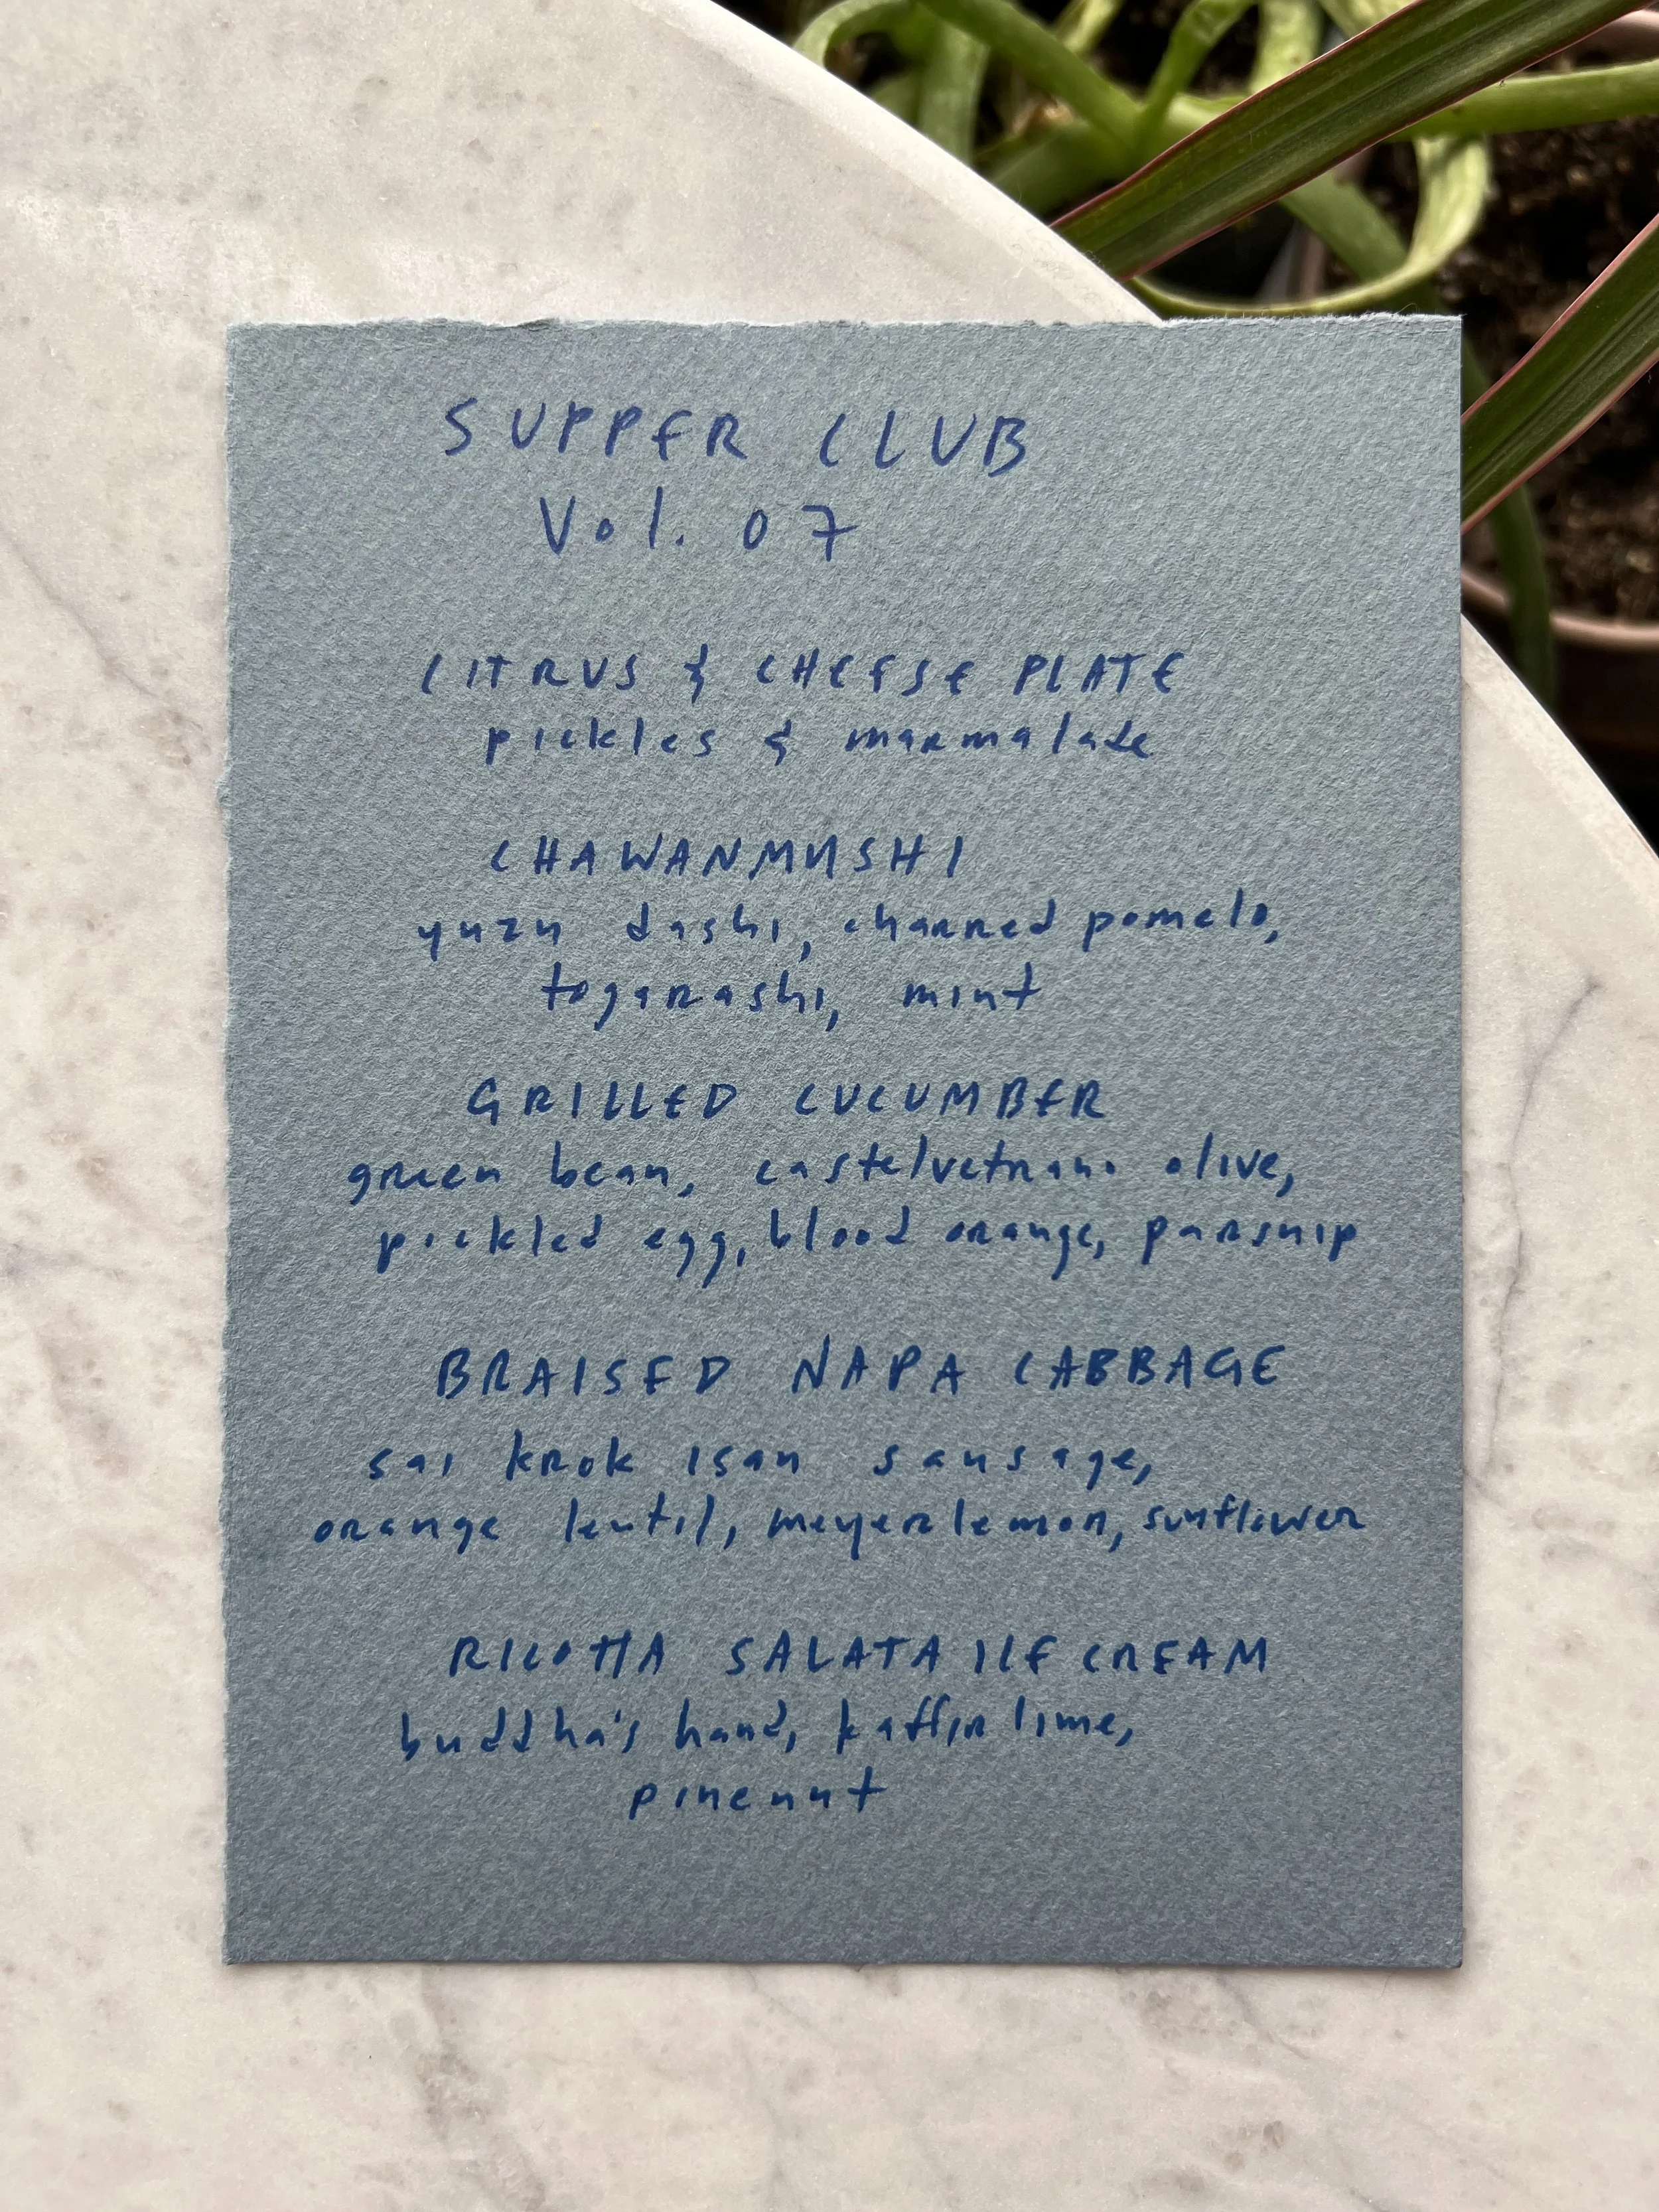 SUPPER CLUB
Vol. 07
CITRUS & CHEESE PLATE
pickles & marmalade
CHAWANMUSHI
yuzu dashi, charred pomelo,
togarashi, mint
GRILLED CUCUMBER
green bean, castelvetrano olive,
pickled egg, blood orange, parsnip
BRAISED NAPA CABBAGE
sai krok isan sausage,
orange lentil, meyer lemon, sunflower
RICOTTA SALATA ICE CREAM
buddha's hand, kaffir lime,
pine nut